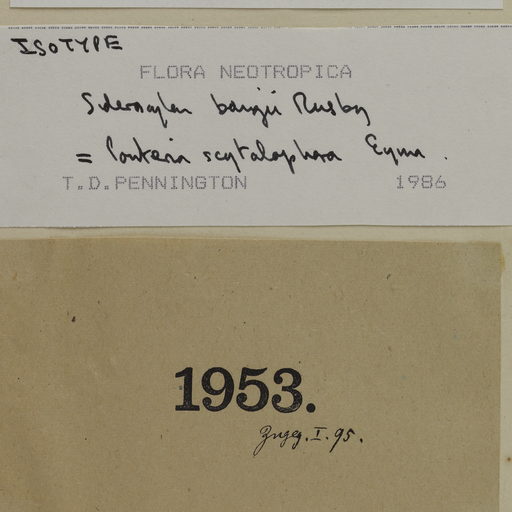 ISOTYPE
FLORA NEOTROPICA
Sideroxylon bangii Rusby
= Pouteria scytalophora Eyma.
T.D.PENNINGTON 1986
1953.
Zugeg. I. 95.